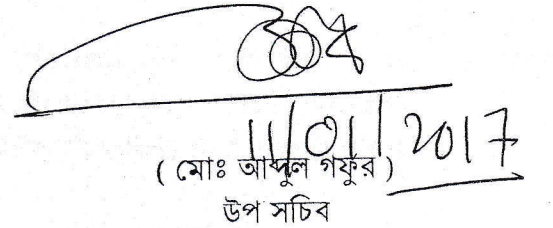 11/01/2017
( মোঃ আব্দুল গফুর )
উপ সচিব